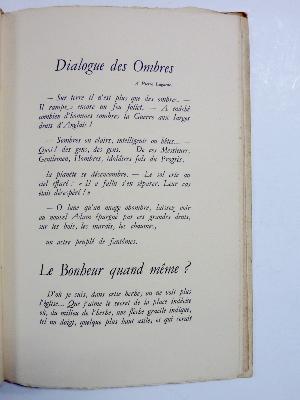 Dialogue des Ombres
A Pierre
— Sur terre il n'est plus que des ombres. —
Il rampe, encore un feu follet. — A mâché
combien d'hommes sombres la Guerre aux larges
dents d'Anglais !
— Sombres ou clairs, intelligents ou bêtes... —
Quoi ! des gens, des gens. — De ces Messieurs,
Gentlemen, Hombres, idolâtres fols du Progrès,
la planète se désencombre. — Le sol crie au
ciel effaré : « Il a fallu s'en séparer. Leur cas
était désespéré ! »
— O lune qu'un nuage obombre, laissez voir
au nouvel Adam épargné par ces grandes dents,
sur les bois, les marais, les chaumes,
un astre peuplé de fantômes.
Le Bonheur quand même ?
D'où je suis, dans cette herbe, on ne voit plus
l'église... Que j'aime le secret de la place indécise
où, du milieu de l'herbe, une flèche gracile indique,
tel un doigt, quelque plus haut asile, et qui serait